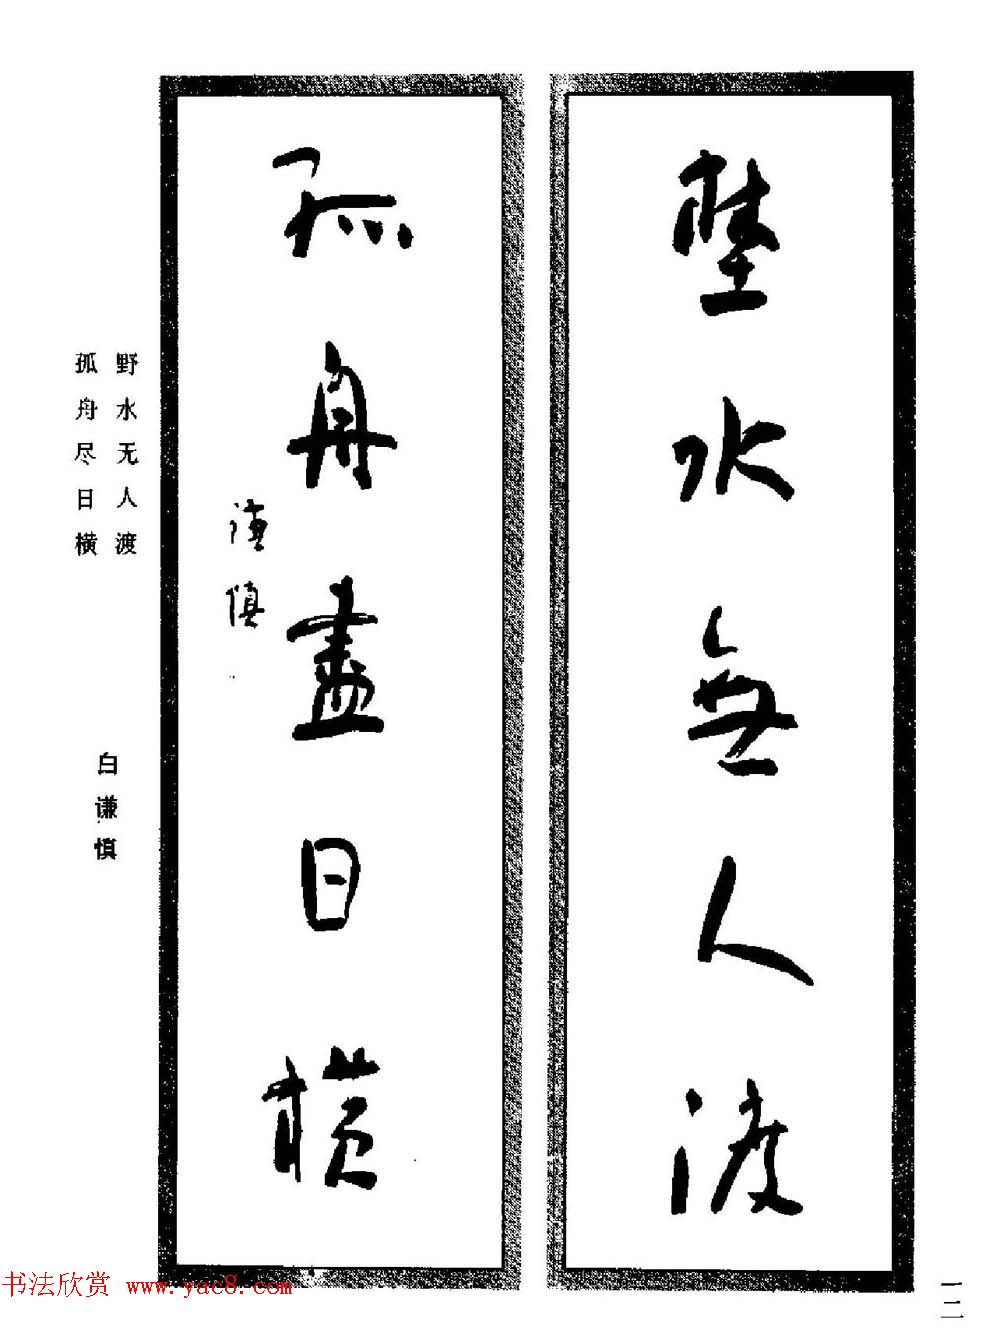 野水無人渡
孤舟盡日橫
谦慎
野水无人渡
孤舟尽日横
白谦慎
书法欣赏 www.yac8.com
一二